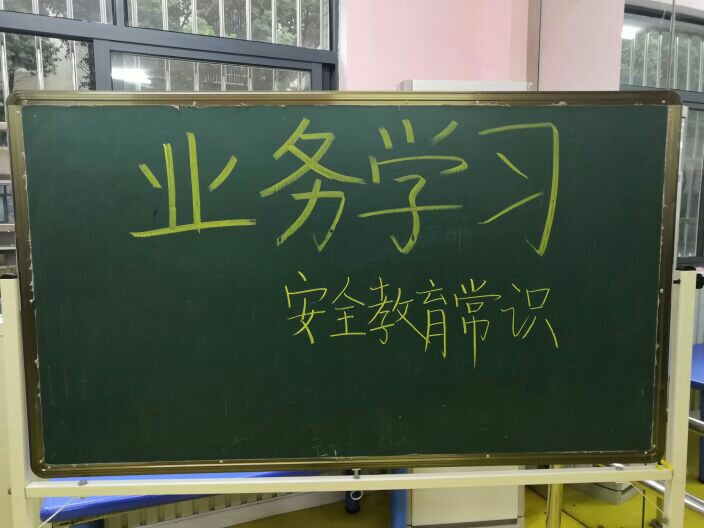 业务学习
安全教育常识